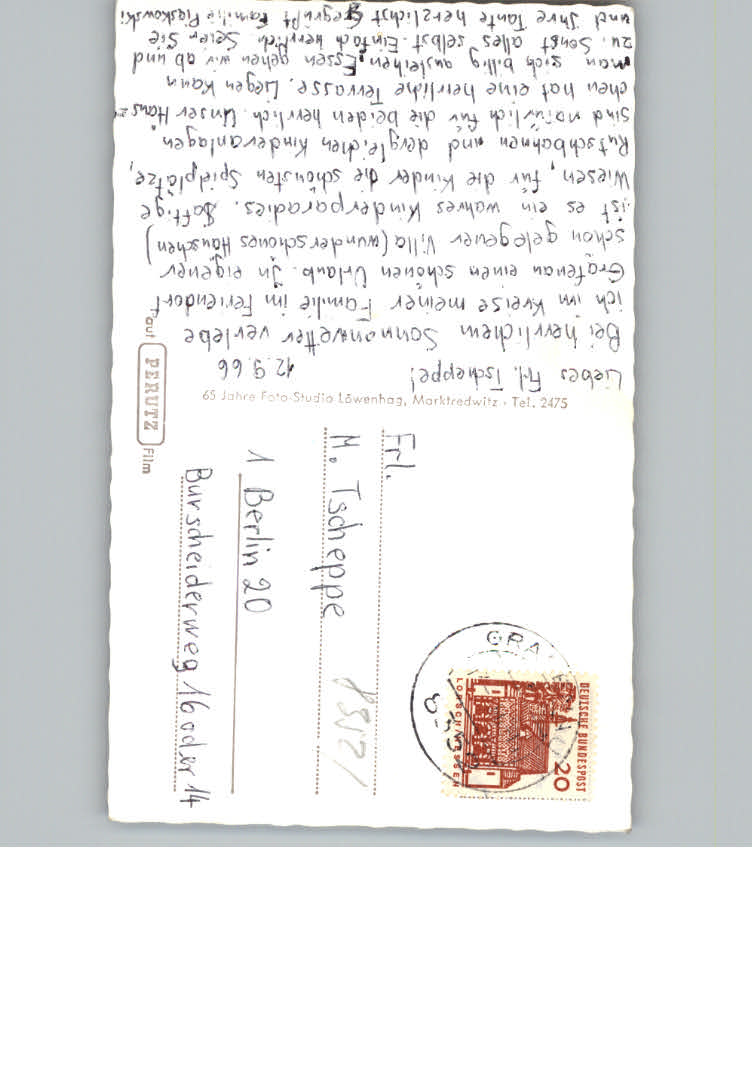 Liebes Frl. Tscheppe! 12.9.66
Bei herrlichem Sonnenwetter verlebe
ich im Kreise meiner Familie im Feriendorf
Grafenau einen schönen Urlaub. In eigener
schön gelegener Villa (wunderschönes Häuschen)
ist es ein wahres Kinderparadies. Saftige
Wiesen, für die Kinder die schönsten Spielplätze,
Rutschbahnen und dergleichen Kinderanlagen
sind natürlich für die beiden herrlich. Unser Häus-
chen hat eine herrliche Terrasse. Liegen kann
man sich billig ausleihen, Essen gehen wir ab und
zu. Sonst alles selbst. Einfach herrlich. Seien Sie
und Ihre Tante herzlichst gegrüßt Familie
65 Jahre Foto-Studio Löwenhag, Marktredwitz · Tel. 2475
auf PERUTZ Film
Frl.
M. Tscheppe
1 Berlin 20
Burscheiderweg 16 oder 14
DEUTSCHE BUNDESPOST
20
LORSCH HESSEN